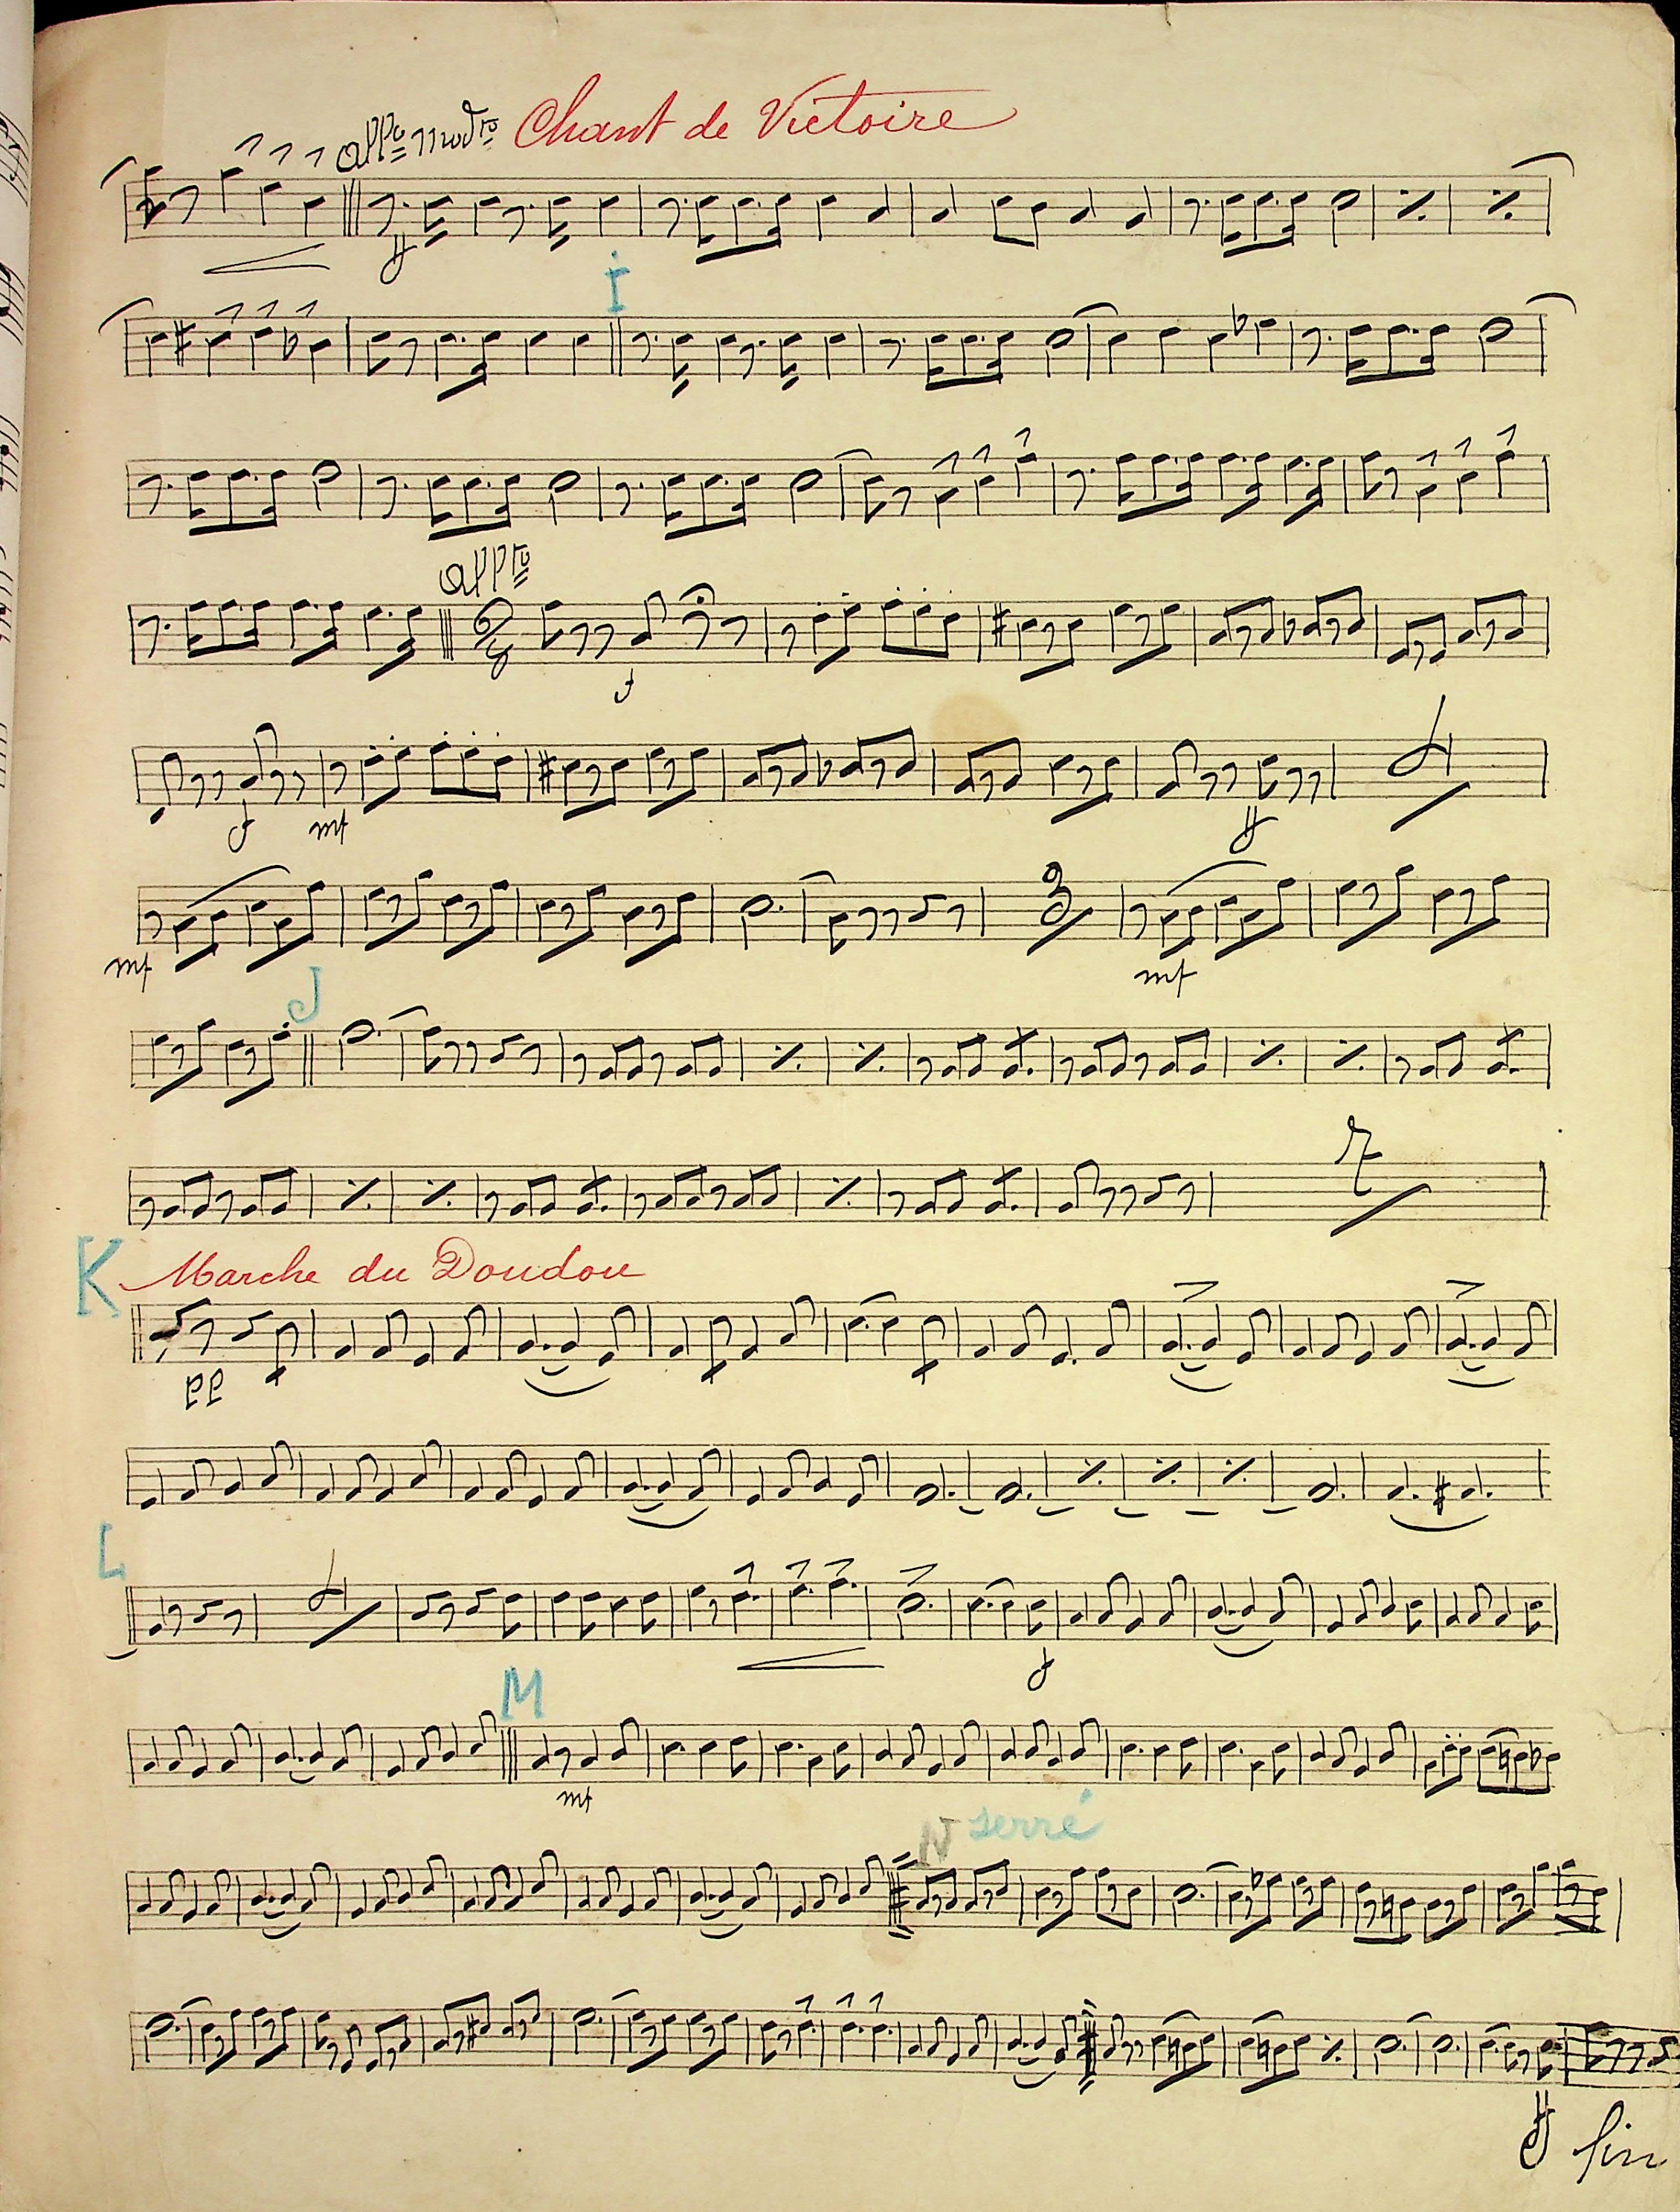 All° mod to Chant de Victoire
ff
I
All to
6/8
f
f mf ff 4
mf 2 mf
J
7
K Marche du Doudou
pp
L
4
f
M
mf
N serré
ff fin